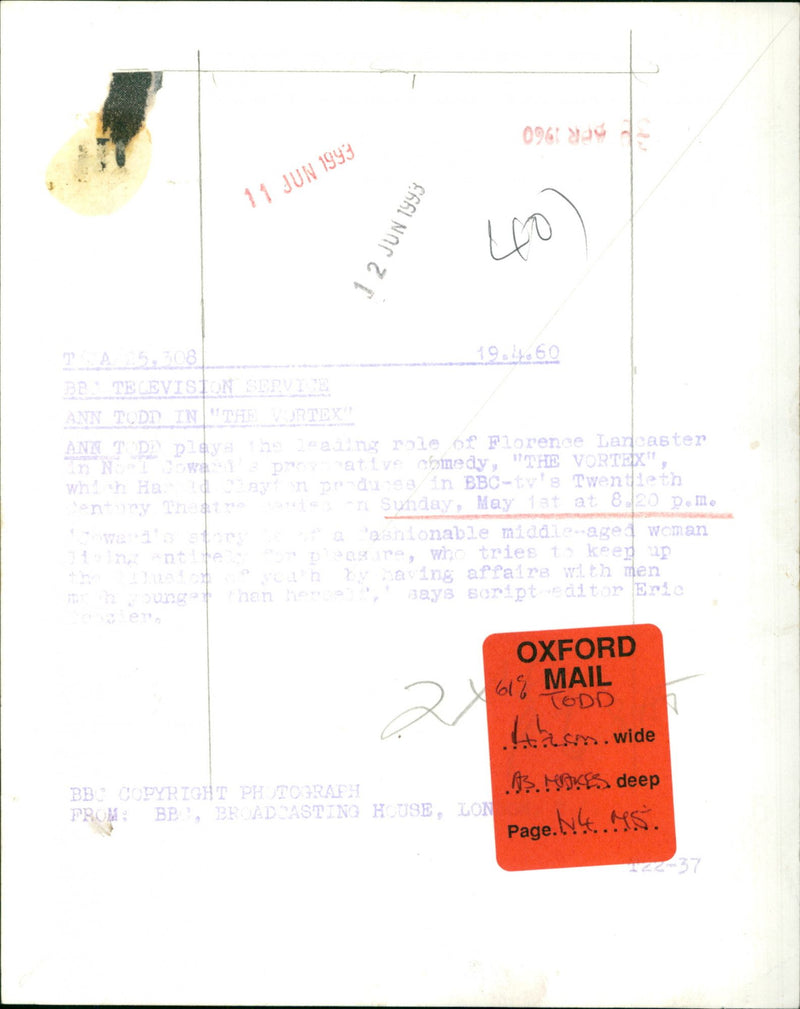 11 JUN 1993
APR 1960
12 JUN 1993
40)
5,308 19.4.60
BBC TELEVISION SERVICE
ANN TODD IN "THE VORTEX"
ANN TODD plays the leading role of Florence Lancaster
in Noel Coward's provocative comedy, "THE VORTEX",
which Harold Clayton produces in BBC-tv's Twentieth
Century Theatre series on Sunday, May 1st at 8.20 p.m.
'Coward's story is of a fashionable middle-aged woman
living entirely for pleasure, who tries to keep up
the illusion of youth by having affairs with men
much younger than herself,' says script-editor Eric
Crozier.
OXFORD
MAIL
61% TODD
2x
4½ cm wide
AS MAKES deep
Page. N4 MS
BBC COPYRIGHT PHOTOGRAPH
FROM: BBC, BROADCASTING HOUSE, LON
T22-37